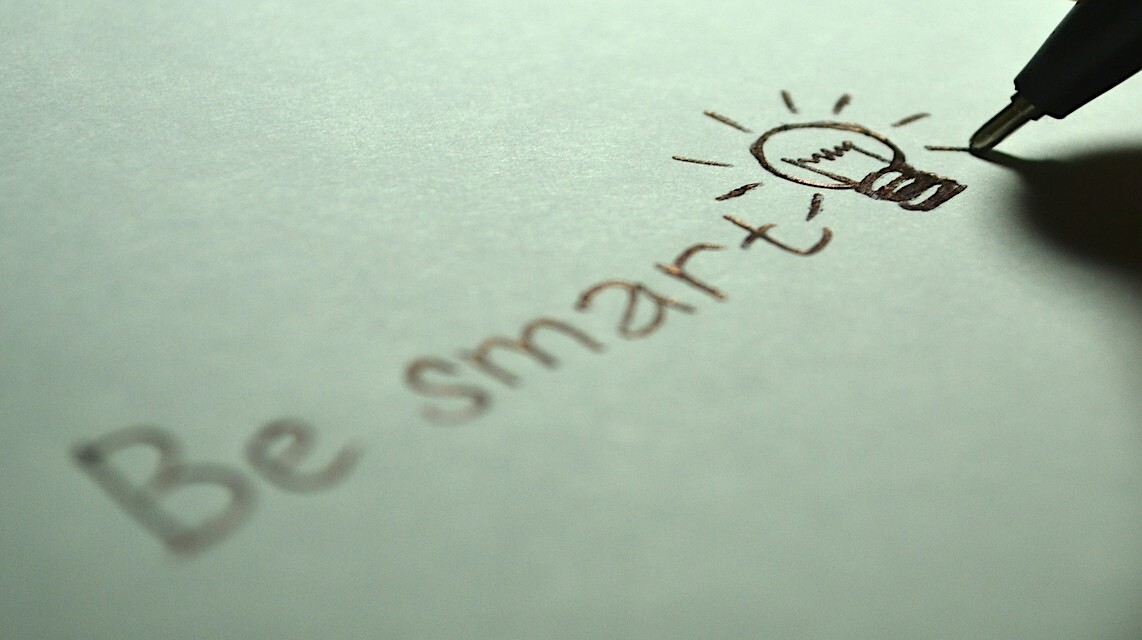 Be smart